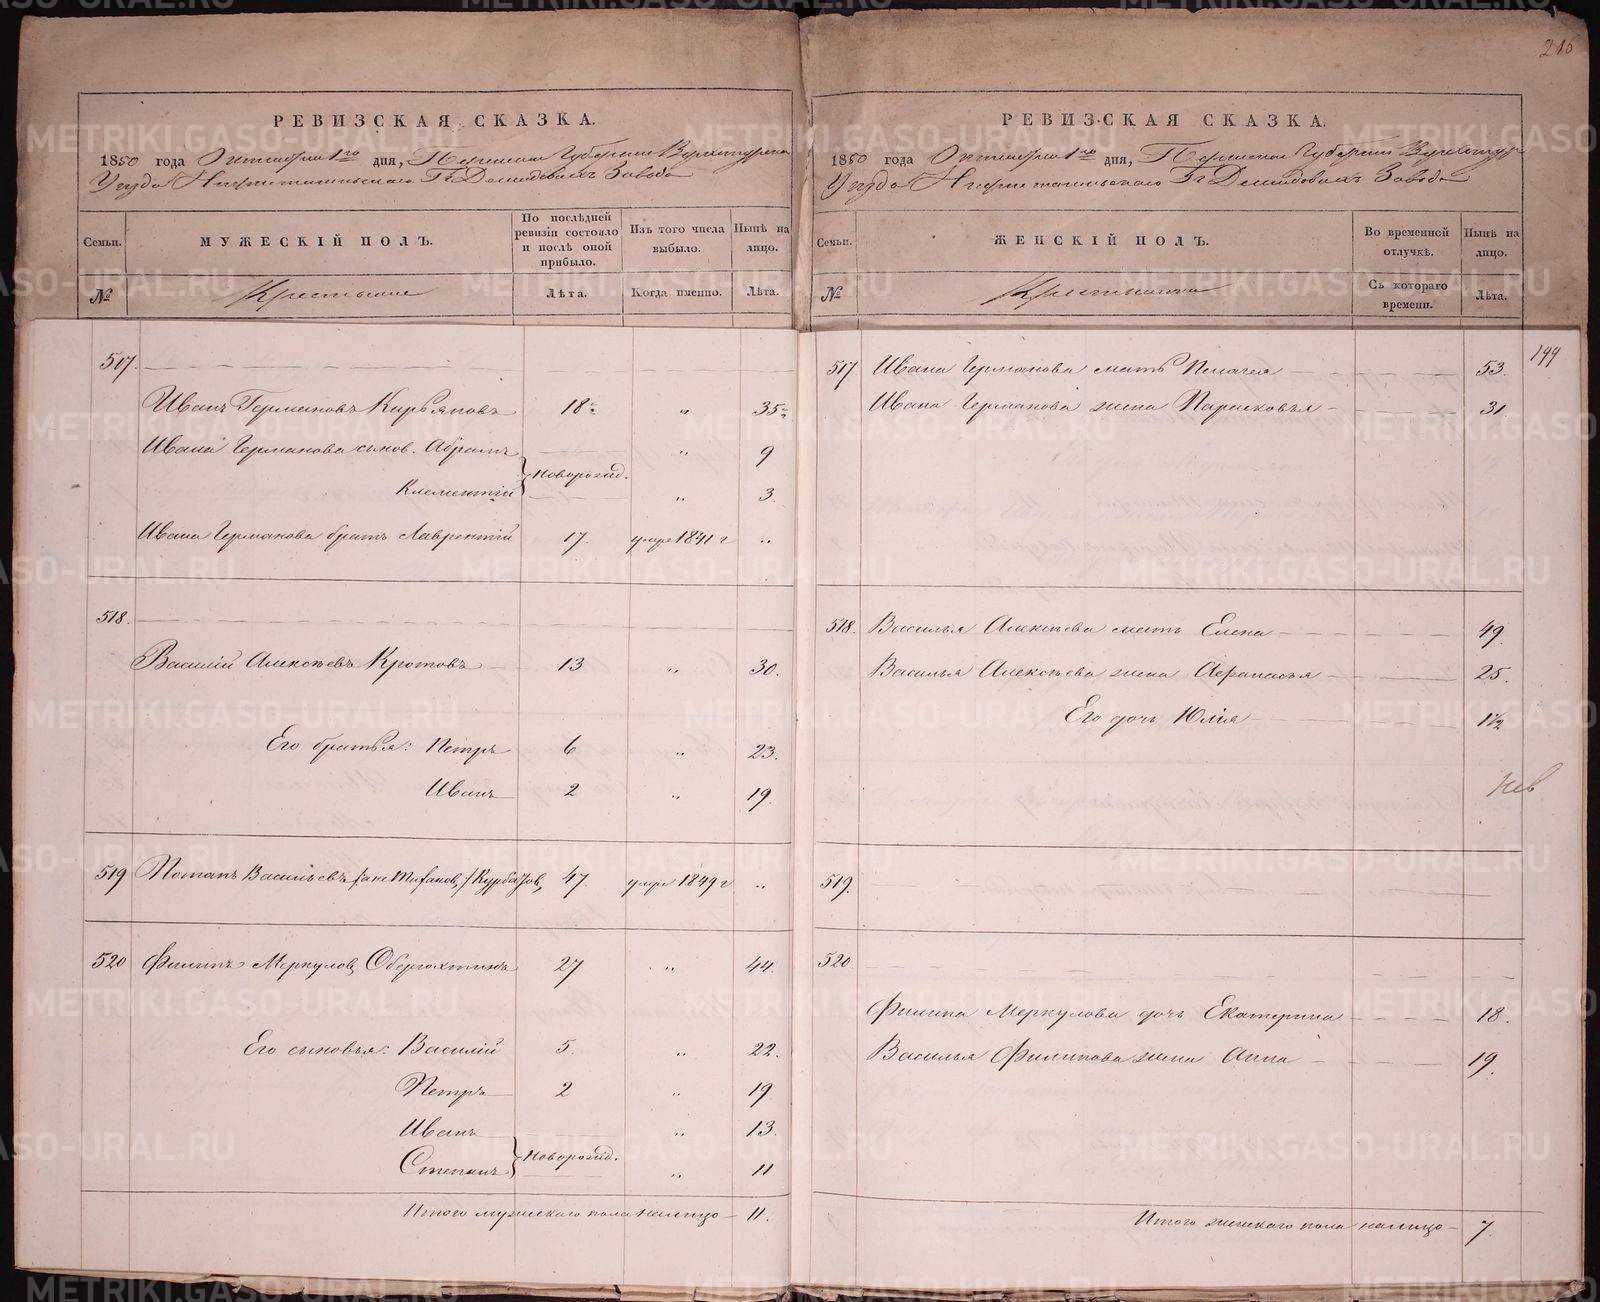 210
РЕВИЗСКАЯ СКАЗКА.
1850 года Октября 1го дня, Пермской Губернии Верхотурска
Уезда Нижнетагильскаго Гг Демидовыхъ Завода
Семьи.
МУЖЕСКІЙ ПОЛЪ.
По послѣдней ревизіи состояло и послѣ оной прибыло.
Изъ того числа выбыло.
Нынѣ на лицо.
№
Крестьяне
Лѣта.
Когда именно.
Лѣта.
517.
Иванъ Германовъ Кирьяновъ 18 " 35
Ивана Германова сынов. Абрамъ " 9
Новорожд.
Клементій " 3
Ивана Германова братъ Лаврентій 17. умре 1841 г "
518.
Василій Алексѣевъ Кротовъ 13 " 30.
Его братья: Петръ 6 " 23.
Иванъ 2 " 19.
519 Потапъ Васильевъ 47 умре 1849 г "
520 Филипъ Меркулов 27 " 44.
Его сыновья: Василій 5. " 22.
Петръ 2 " 19.
Иванъ " 13.
Новорожд.
Степанъ " 11
Итого мужескаго пола налицо 11.
РЕВИЗСКАЯ СКАЗКА.
1850 года Октября 1го дня, Пермской Губерніи Верхотур
Уезда Нижнетагильскаго Гг Демидовыхъ Завода
Семьи.
ЖЕНСКІЙ ПОЛЪ.
Во временной отлучкѣ.
Нынѣ на лицо.
№
Крестьянки
Съ котораго времени.
Лѣта.
199
517. Ивана Германова мать Пелагея 53.
Ивана Германова жена Парасковья 31
518. Василья Алексѣева мать Елена 49.
Василья Алексѣева жена Афанасья 25.
Его дочь Юлія 1 1/2
519.
520
Филипа Меркулова дочь Екатерина 18.
Василья Филипова жена Анна 19.
Итого женскаго пола налицо 7.
METRIKI.GASO-URAL.RU